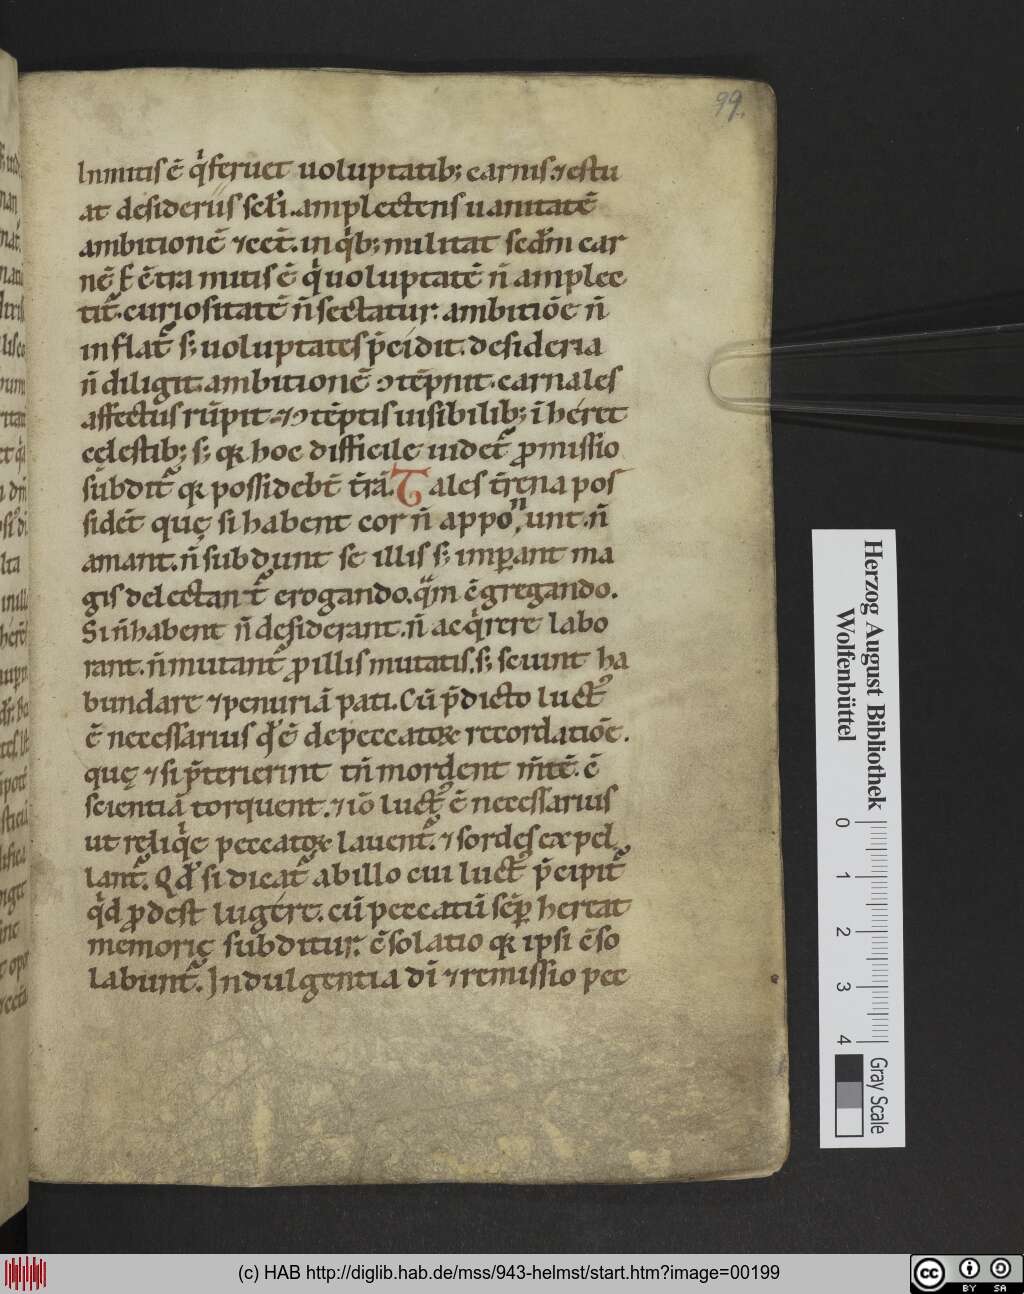 99.
Inmitis ē q̇ feruet uoluptatib; carnis. ⁊ estu
at desideriis sc̄li. amplectens uanitatē
ambitionē ⁊ cet̄. in q̇b; militat scd̄m car
nē. Ecōtra mitis ē q̇ uoluptatē n̄ amplec
tit᷑. curiositatē n̄ sectatur. ambitiōe n̄
inflat᷑ s; uoluptates p̄cidit. desideria
n̄ diligit. ambitionē ↄtēpnit. carnales
affectus rūpit. ⁊ ↄtēptis uisibilib; īheret
cęlestib; s; qꝛ hoc difficile uidet᷑ ꝓmissio
subdit᷑ qꝛ possidebt̄ t̄rā. Tales t̄rena pos
sidēt quę si habent cor n̄ apponunt. n̄
amant. n̄ subdunt se illis s; imꝑant ma
gis delectant᷑ erogando. qm̄ ↄgregando.
Si n̄ habent n̄ desiderant. n̄ acq̇rere labo
rant. n̄ mutant᷑ ꝓ illis mutatis. s; sciunt ha
bundare ⁊ penuriā pati. Cū p̄dicto luctu
ē necessarius q̇ ē de peccatoꝝ recordatiōe.
quę ⁊ si p̄terierint tn̄ mordent mt̄ē. ⁊
scientiā torquent. ⁊ iō luct᷒ ē necessarius
ut reliq̇e peccatoꝝ lauent᷑. ⁊ sordes expel
lant᷑. Qd̄ si dicat᷑ ab illo cui luct᷒ p̄cipit᷑
q̇d ꝓdest lugere. cū peccatū sēꝑ hereat
memorię subditur. ↄsolatio qꝛ ipsi ↄso
labunt᷑. Indulgentia dī ⁊ remissio pec
Herzog August Bibliothek
Wolfenbüttel
0 1 2 3 4
Gray Scale
(c) HAB http://diglib.hab.de/mss/943-helmst/start.htm?image=00199
cc BY SA